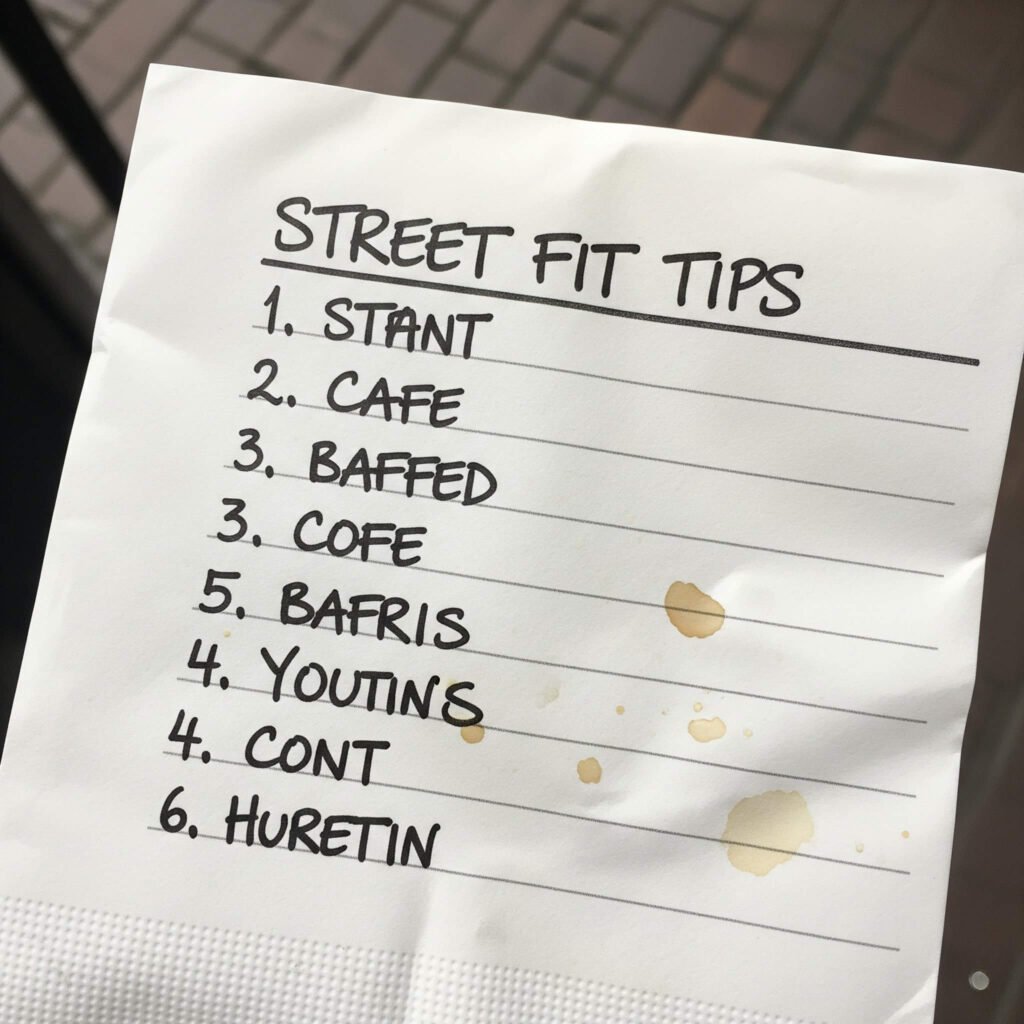 STREET FIT TIPS
1. STANT
2. CAFE
3. BAFFED
3. COFE
5. BAFRIS
4. YOUTINS
4. CONT
6. HURETIN